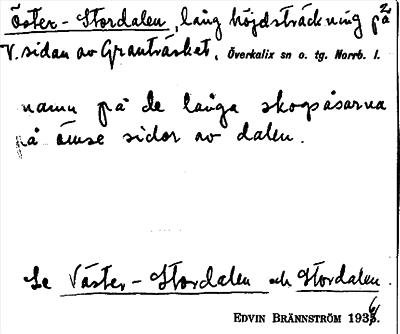 Öster-Stordalen, lång höjdsträckning på
V. sidan av Granträsket, Överkalix sn o. tg. Norrb. l.
namn på de långa skogsåsarna
på ömse sidor av dalen.
Se Väster-Stordalen och Stordalen.
EDVIN BRÄNNSTRÖM 1936.